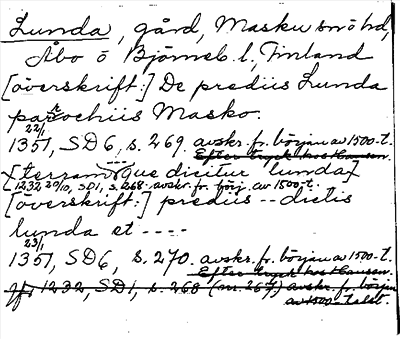 Lunda, gård, Masku snöhd,
Åbo o Björneb. l., Finland
[överskrift:] De prediis Lunda
parochiis Masko.
22/1
1351, SD6, s. 269. avskr. fr. början av 1500-t.
Efter tryck hos Hausen.
[terram - - que dicitur lunda]
1232 20/10, SD1, s. 268. avskr. fr. börj. av 1500-t.
[överskrift:] prediis -- dictis
lunda et ----
23/1
1351, SD6, s. 270. avskr. fr. början av 1500-t.
Efter tryck hos Hausen.
jfr 1232, SD1, s. 268 (nr. 267) avskr. fr. början
av 1500-talet.